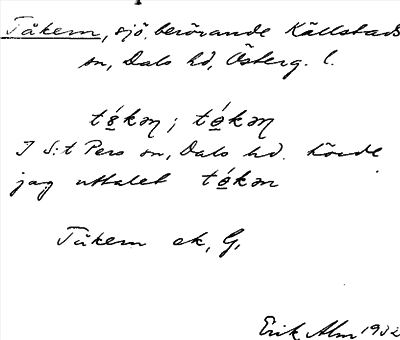 Tåkern, sjö, berörande Källstads
sn, Dals hd, Österg. l.
tó̱kəɳ; tó̱kəɳ
I S:t Pers sn, Dals hd. hörde
jag uttalet tó̱kən
Tåkern ek, G,
Erik Alm 1932